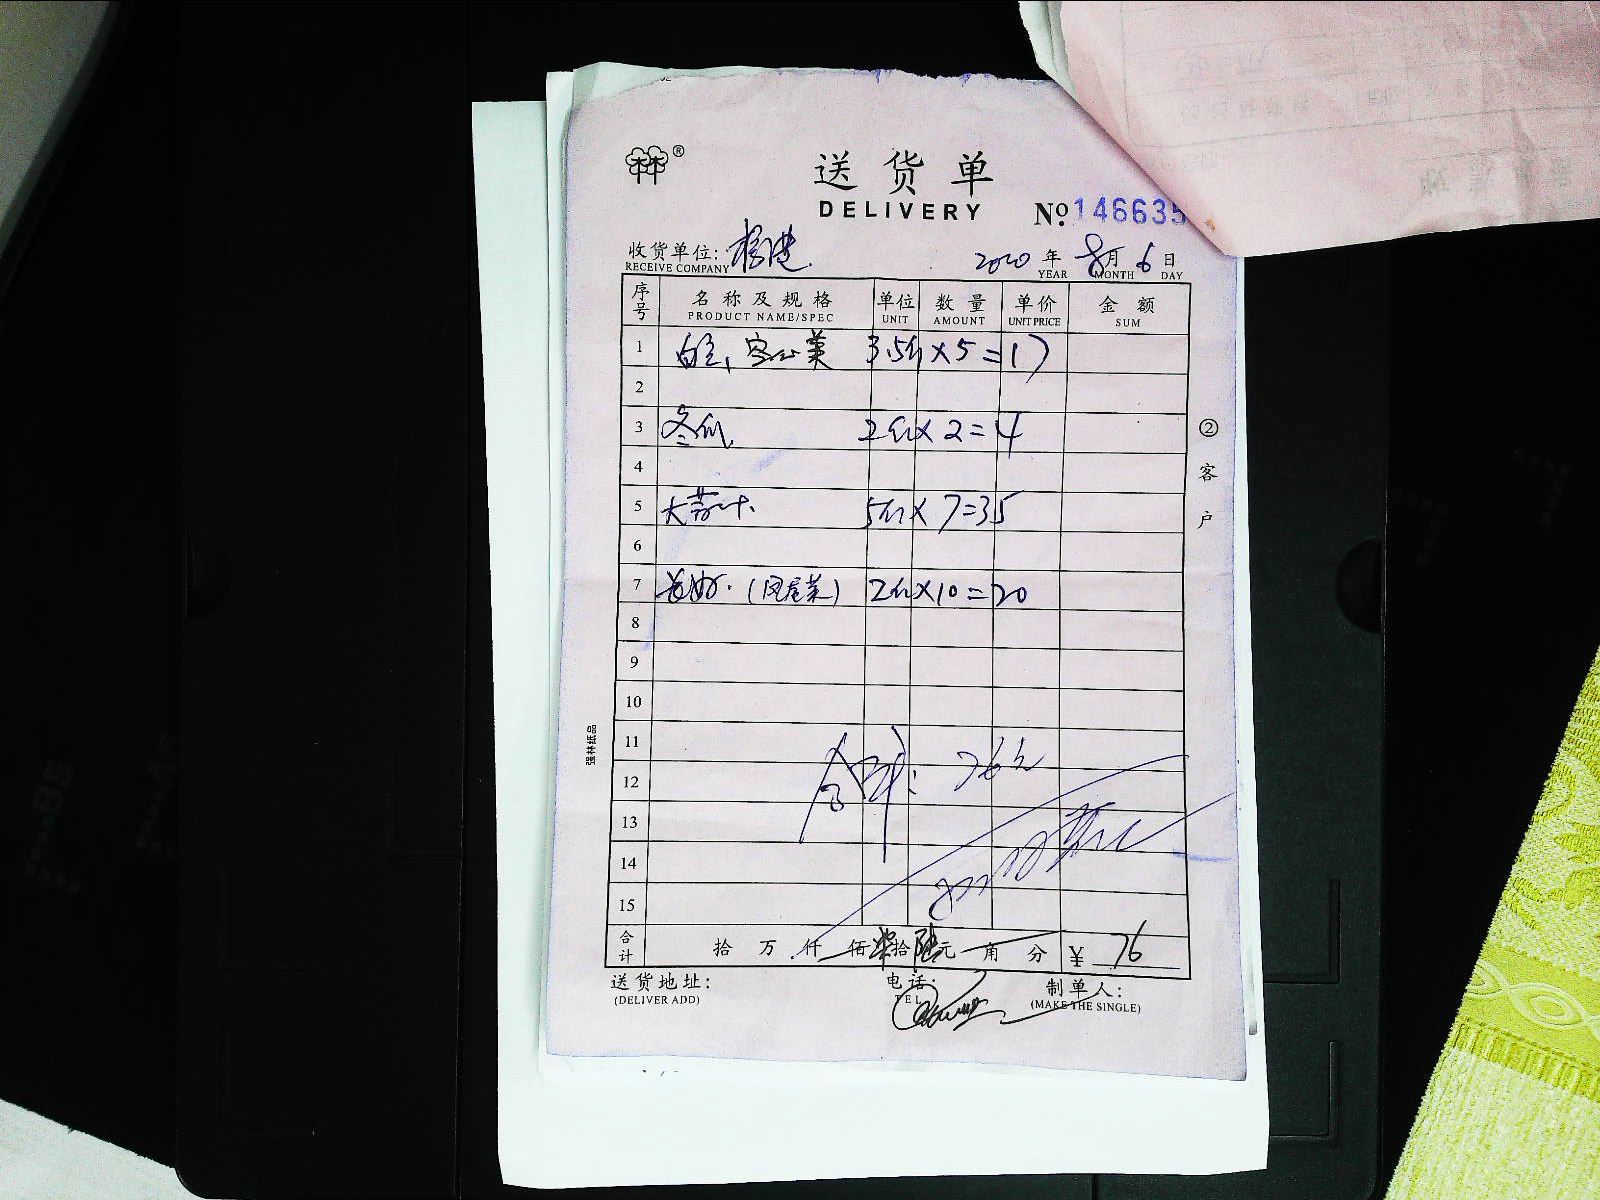 林林®
送货单
DELIVERY
№146635
收货单位:
RECEIVE COMPANY
2020年8月6日
YEAR MONTH DAY
序号 名称及规格 单位 数量 单价 金额
PRODUCT NAME/SPEC UNIT AMOUNT UNIT PRICE SUM
1 3.5斤×5=17
2
3 冬瓜 2斤×2=4
4
5 大蒜叶 5斤×7=35
6
7 (凤尾菜) 2斤×10=20
8
9
10
11
12 合计: 76元
13
14
15
合计 拾万仟佰柒拾陆元角分 ¥76
送货地址: 电话: 制单人:
(DELIVER ADD) TEL (MAKE THE SINGLE)
②客户
强林纸品